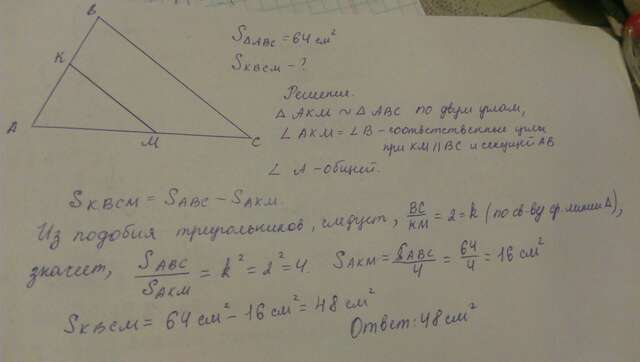 B
K
A
M
C
S△ABC = 64 см²
SKBCM - ?
Решение.
△ AKM ∾ △ ABC по двум углам,
∠ AKM = ∠ B - соответственные углы
при KM || BC и секущей AB
∠ A - общий.
SKBCM = SABC - SAKM.
Из подобия треугольников, следует, BC/KM = 2 = k (по св-ву ср. линии △),
значит, SABC/SAKM = k² = 2² = 4. SAKM = SABC/4 = 64/4 = 16 см²
SKBCM = 64 см² - 16 см² = 48 см²
Ответ: 48 см²